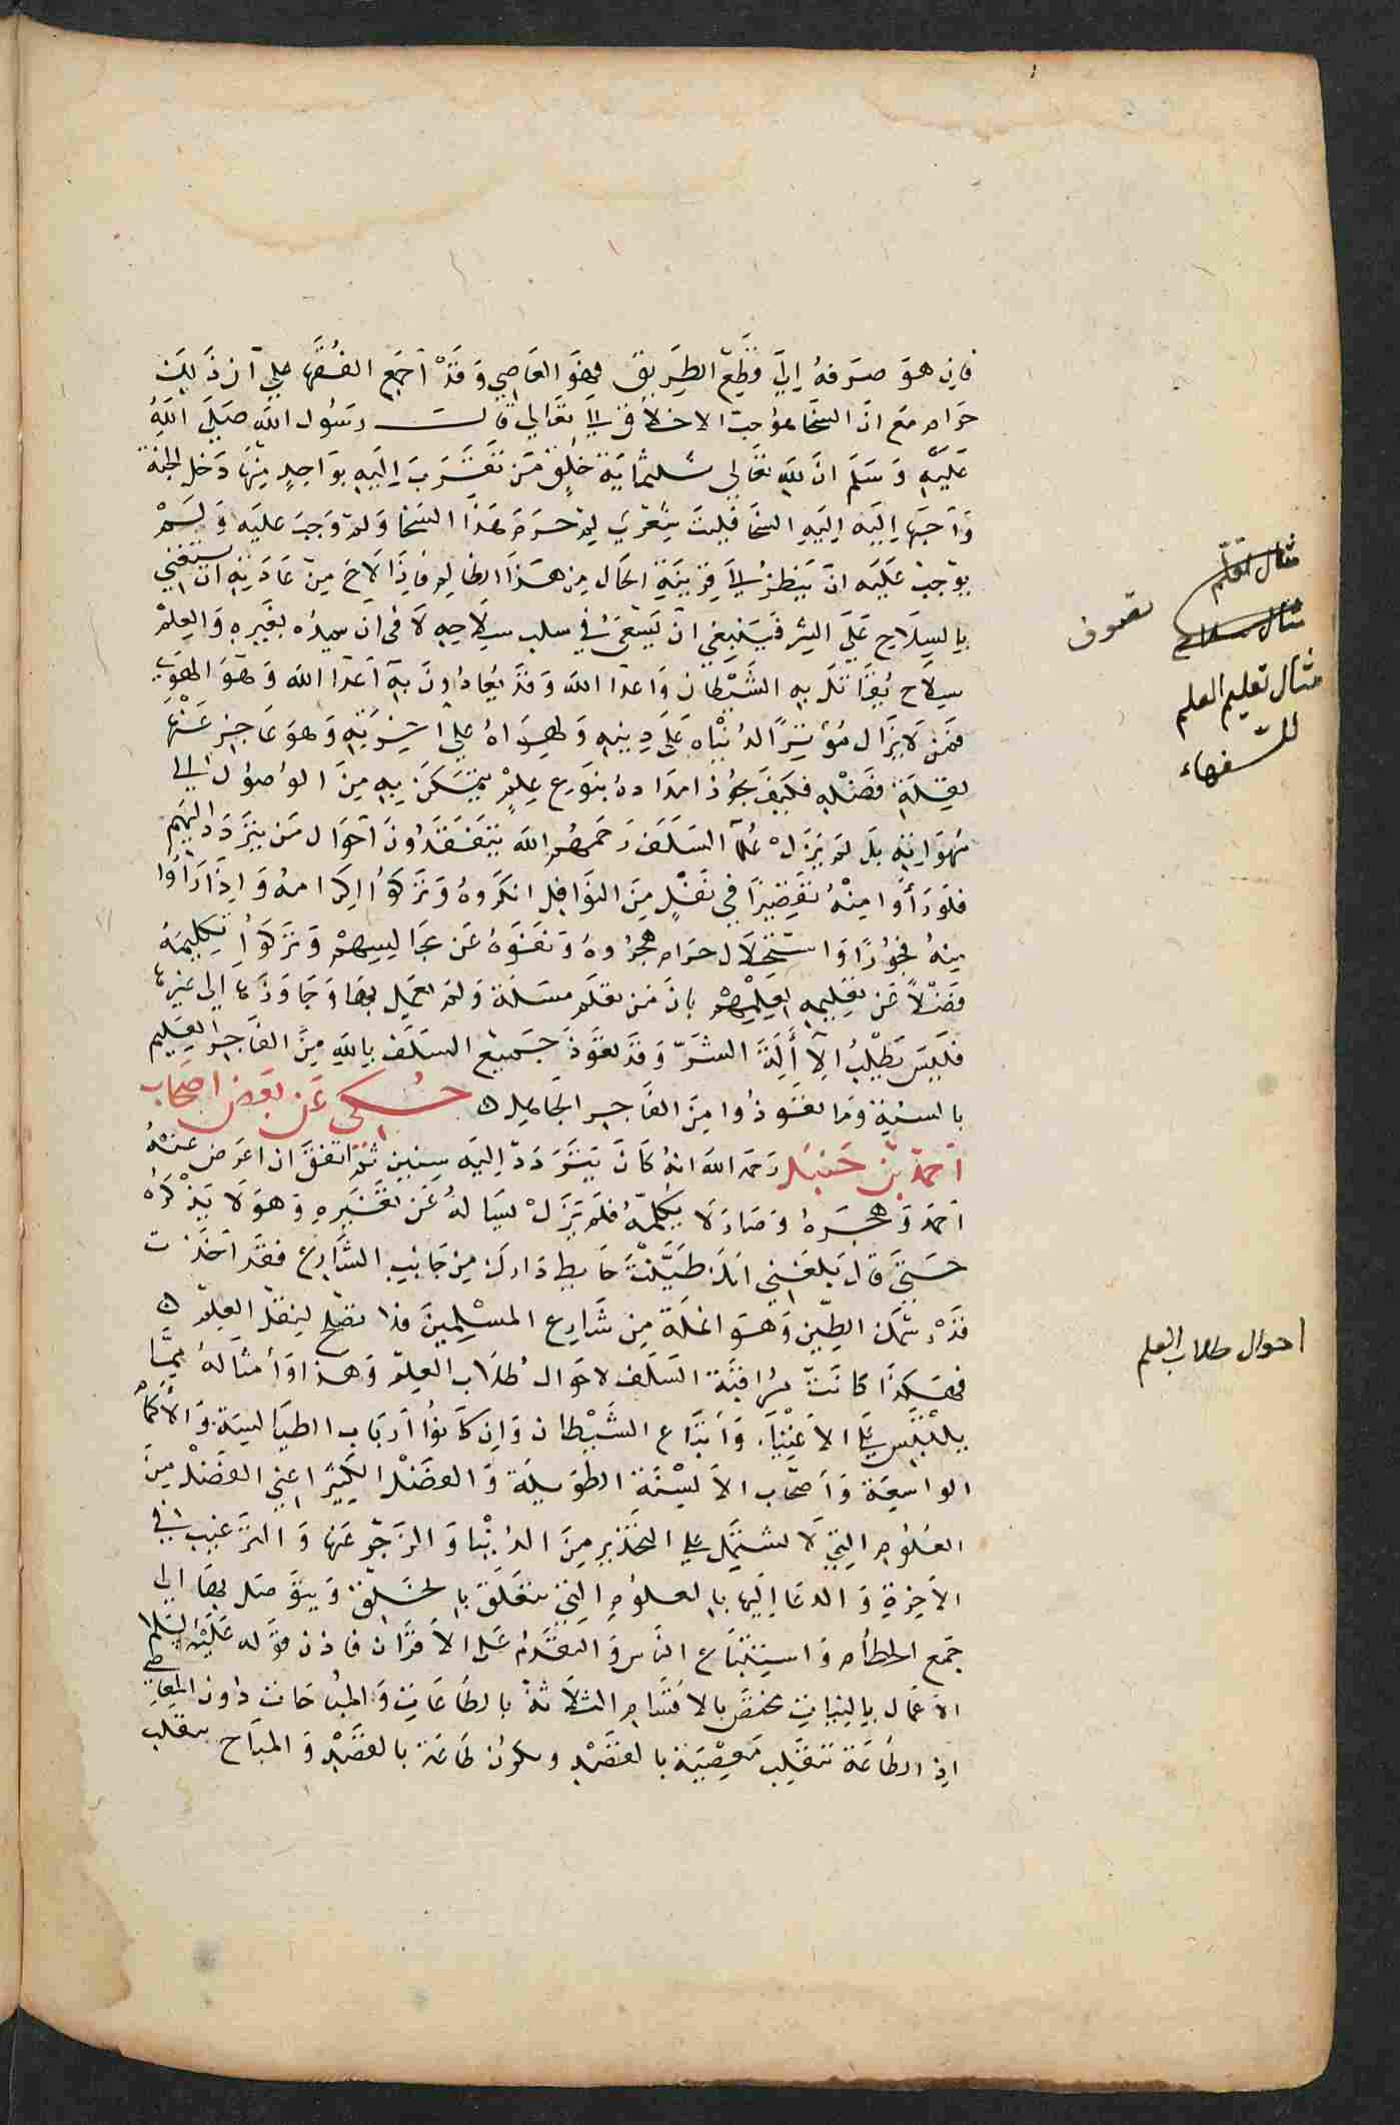 فان هو صرفه الي قطع الطريق فهو العاصي وقد اجمع الفقها علي ان ذلك
حرام مع ان السخا هو احب الاخلاق الي الله تعالي قال رسول الله صلي الله
عليه وسلم ان لله تعالي ثليثماية خلق من تقرب اليه بواحد منها دخل الجنة
واحبها اليه السخا فليت شعري لم حرم هذا السخا ولم وجب عليه ولم
يوجب عليه ان ينظر الي قرينة الحال من هذا الظالم فاذا لاح من عادته انه يستعين
بالسلاح علي الشر فينبغي ان يسعي في سلب سلاحه لا في ان يمده بغيره والعلم
سلاح يقاتل به الشيطان واعدا الله وقد يعادون به اعدا الله وهو الهوي
فمن لا يزال موثرا لدنياه علي دينه ولهواه علي اخرته وهو عاجز عنها
لقلة فضله فكيف يجوز امداده بنوع علم يتمكن به من الوصول الي
شهواته بل لم يزل علما السلف رحمهم الله يتفقدون احوال من يتردد اليهم
فلو رأوا منه تقصيرا في نفل من النوافل انكروه وتركوا اكرامه واذا رأوا
منه فجورا واستحلال حرام هجروه ونفوه عن مجالسهم وتركوا تكليمه
فضلا عن تعليمه لعلمهم بان من تعلم مسئلة ولم يعمل بها وجاوزها الي غيرها
فليس يطلب الا آلة الشر وقد تعوذ جميع السلف بالله من الفاجر العليم
بالسنة وما تعوذوا من الفاجر الجاهل ه حكي عن بعض اصحاب
احمد بن حنبل رحمه الله انه كان يتردد اليه سنين ثم اتفق ان اعرض عنه
احمد وهجره وصار لا يكلمه فلم يزل يساله عن تغيره وهو لا يذكره
حتي قال بلغني انك طينت حايط دارك من جانب الشارع فقد اخذت
قدر سمك الطين وهو انملة من شارع المسلمين فلا تصلح لنقل العلم ه
فهكذا كانت مراقبة السلف لاحوال طلاب العلم وهذا وامثاله مما
يلتبس علي الاغبيا واتباع الشيطان وان كانوا ارباب الطيالسة والاكمام
الواسعة واصحاب الالسنة الطويلة والفضل الكثير اعني الفضل من
العلوم التي لا تشتمل علي التحذير من الدنيا والزجر عنها والترغيب في
الاخرة والدعا اليها بل العلوم التي تتعلق بالخلق ويتوصل بها الي
جمع الحطام واستتباع الناس والتقدم علي الاقران فاذن قوله عليه السلام
الاعمال بالنيات يختص بالاقسام الثلاثة بالطاعات والمباحات دون المعاصي
اذ الطاعة تنقلب معصية بالقصد وتكون طاعة بالقصد والمباح ينقلب
تصوف
مثال تعلم
مثال سلاح
مثال تعليم العلم
للسفهاء
احوال طلاب العلم